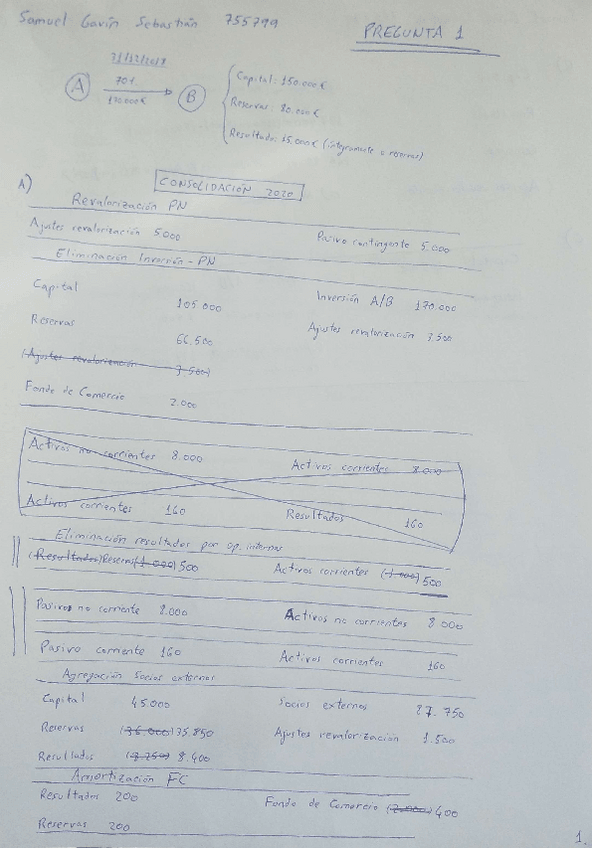 Samuel Gavín Sebastián 755799
PREGUNTA 1
31/12/2018
A 70% B
170.000€
Capital: 150.000€
Reservas: 80.000€
Resultado: 15.000€ (íntegramente a reservas)
A) CONSOLIDACIÓN 2020
Revalorización PN
Ajustes revalorización 5000 Pasivo contingente 5.000
Eliminación Inversión - PN
Capital 105.000 Inversión A/B 170.000
Reservas 66.500 Ajustes revalorización 3.500
(Ajustes revalorización 3.500)
Fondo de Comercio 2.000
Activos no corrientes 8.000 Activos corrientes 8.000
Activos corrientes 160 Resultados 160
Eliminación resultados por op. internas
(Resultados) Reservas (1.000) 500 Activos corrientes (1.000) 500
Pasivos no corriente 8.000 Activos no corrientes 8.000
Pasivo corriente 160 Activos corrientes 160
Agregación Socios externos
Capital 45.000 Socios externos 87.750
Reservas (36.000) 35.850 Ajustes revalorización 1.500
Resultados 8.400
Amortización FC
Resultados 200 Fondo de Comercio (2.000) 400
Reservas 200
1.